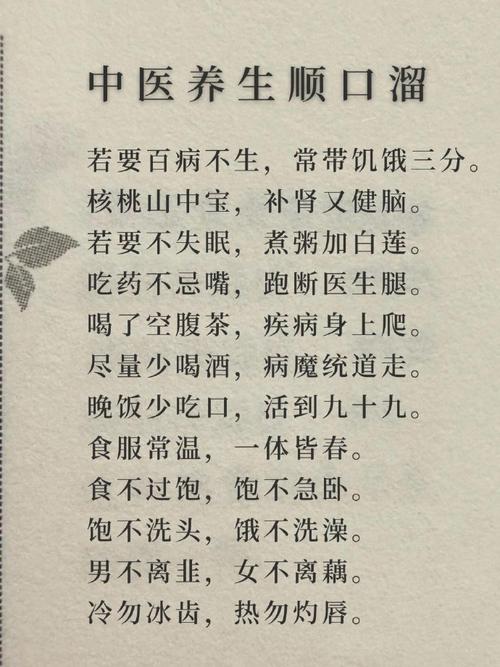 中医养生顺口溜
若要百病不生，常带饥饿三分。
核桃山中宝，补肾又健脑。
若要不失眠，煮粥加白莲。
吃药不忌嘴，跑断医生腿。
喝了空腹茶，疾病身上爬。
尽量少喝酒，病魔统道走。
晚饭少吃口，活到九十九。
食服常温，一体皆春。
食不过饱，饱不急卧。
饱不洗头，饿不洗澡。
男不离韭，女不离藕。
冷勿冰齿，热勿灼唇。